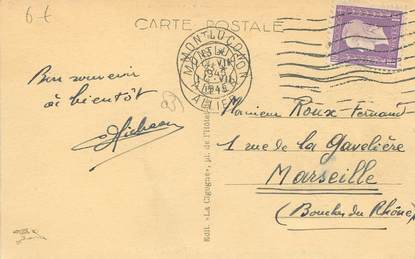 6 €
CARTE POSTALE
MONTLUÇON
ALLIER
Bon souvenir
à bientôt
Monsieur Roux Fernand
1 rue de la
Marseille
(Bouches du Rhône)
Edit. «La Cigogne», pl. de l'Hôtel